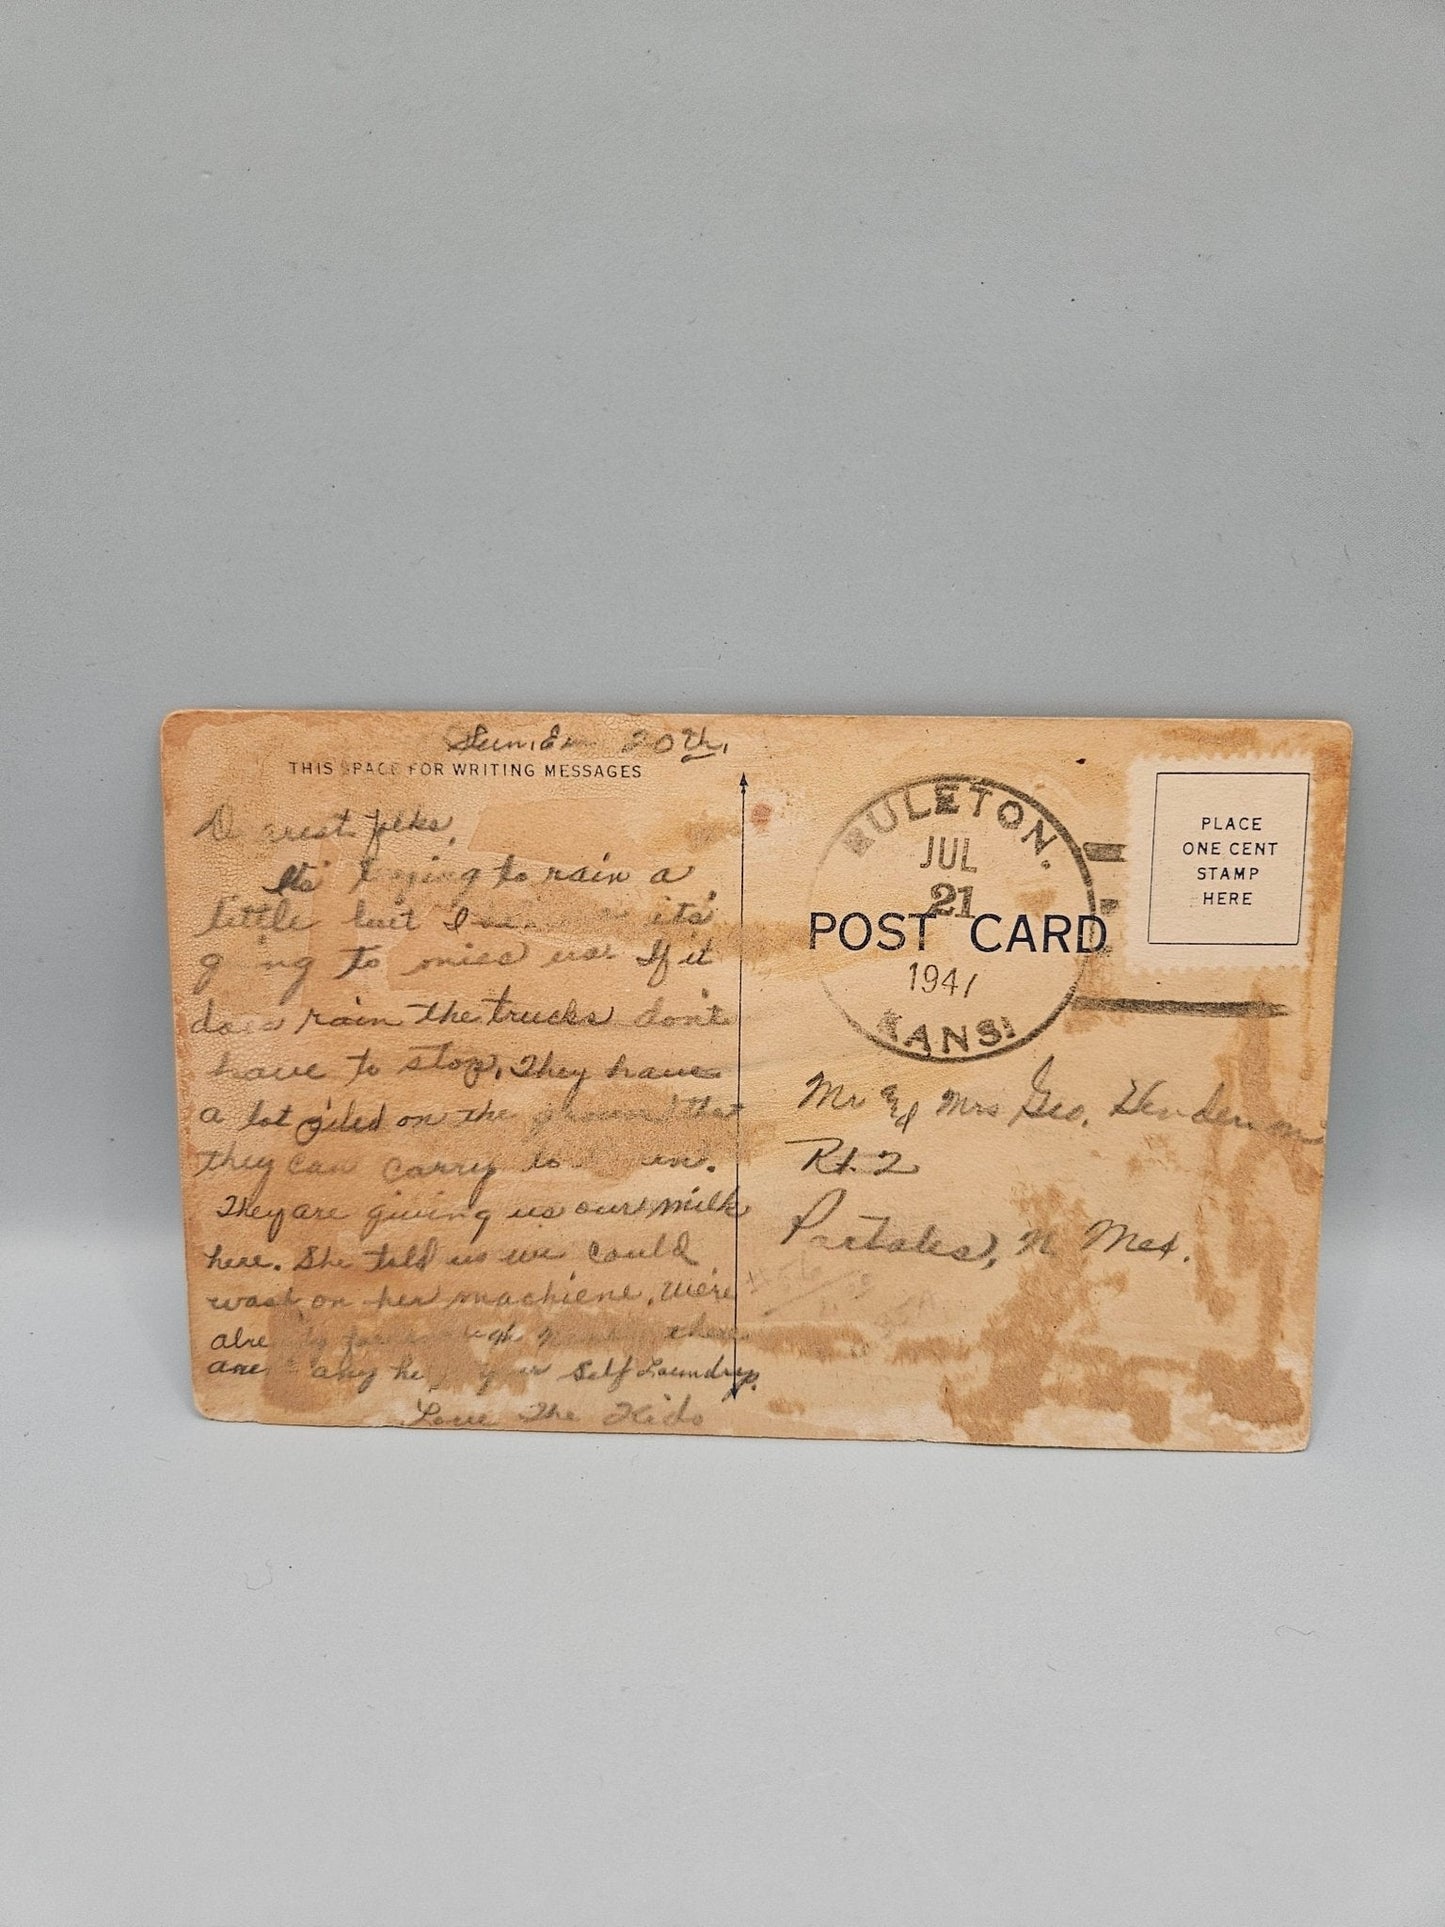 Sun. Eve 20th.
THIS SPACE FOR WRITING MESSAGES
Dearest folks,
Its trying to rain a
little but I its
going to miss us. If it
does rain the trucks don't
have to stop. They have
a lot piled on the ground that
they can carry to
They are giving us our milk
here. She told us we could
wash on her machiene. We're
already
any your Self Laundry.
Love The Kids
RULETON.
JUL
21
1947
KANS.
POST CARD
PLACE
ONE CENT
STAMP
HERE
Mr & Mrs Geo. Henderson
Rt. 2
Portales, N. Mex.